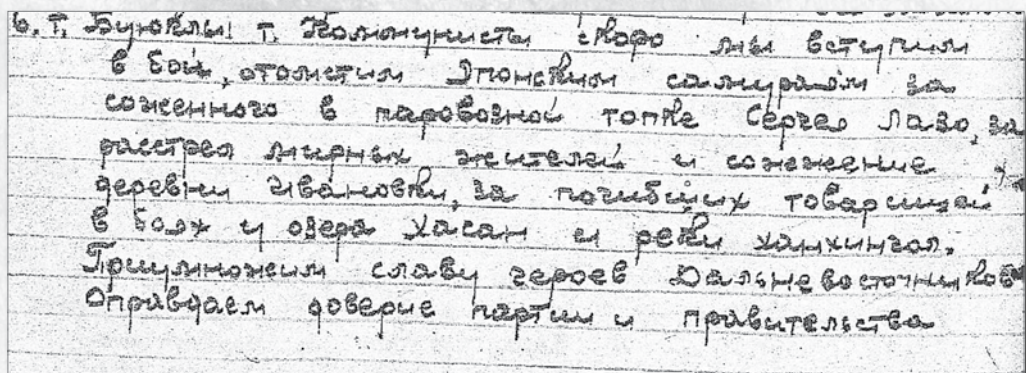 6. Т. Буюклы! т. Коммунисты скоро мы вступим
в бой, отомстим Японским самураям за
соженного в паровозной топке Сергея Лазо, за
расстрел мирных жителей и сожежение
деревни Ивановки, за погибших товарищей
в боях у озера Хасан и реки Ханхингол.
Приумножим славу героев Дальневосточников
Оправдаем доверие партии и правительства